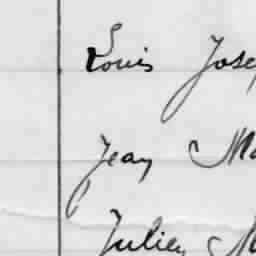 Louis Jose
Jean Ma
Julien M